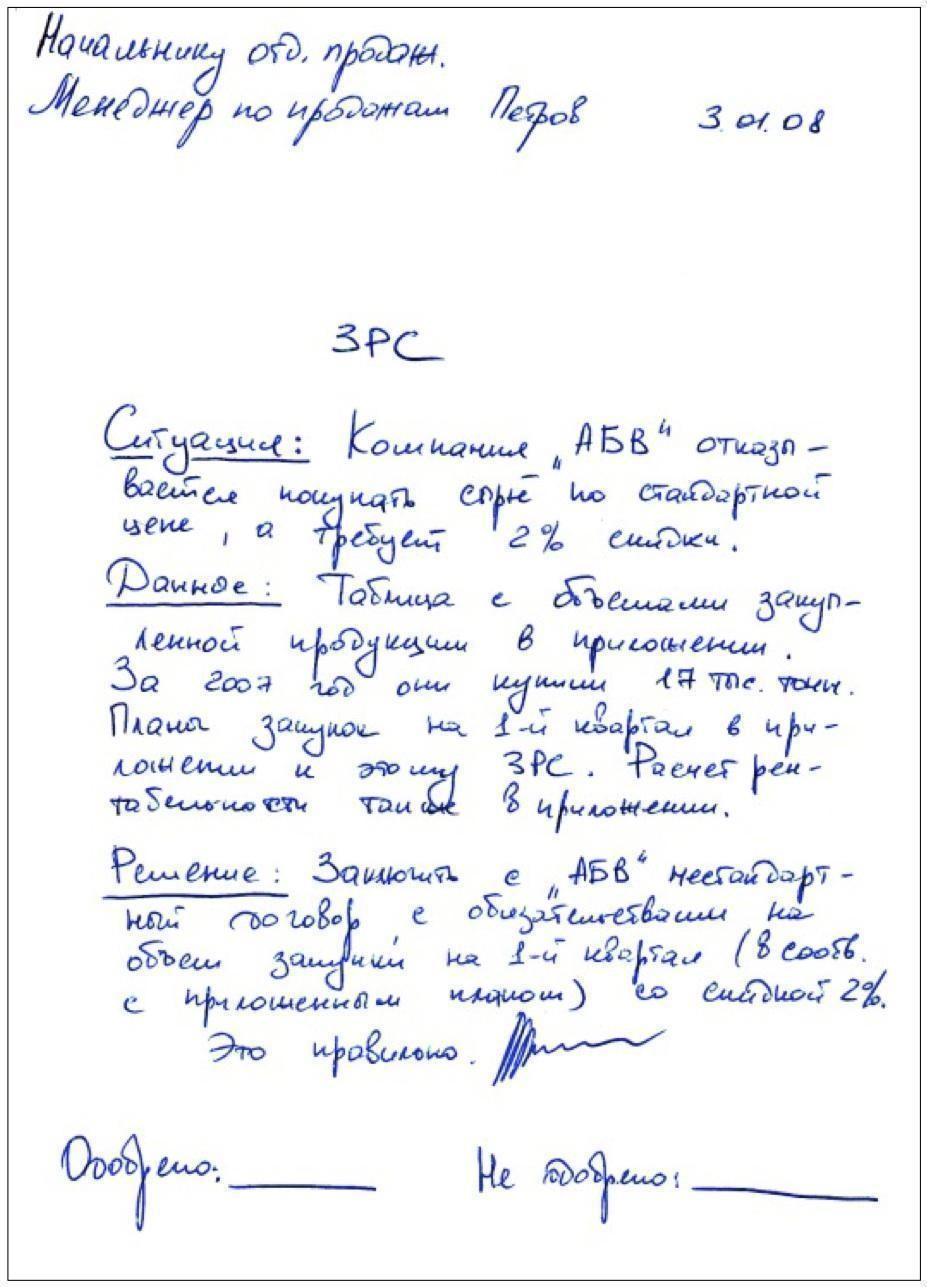 Начальнику отд. продаж.
Менеджер по продажам Петров 3.01.08
ЗРС
Ситуация: Компания „АБВ“ отказы-
вается покупать сырьё по стандартной
цене, а требует 2% скидки.
Данное: Таблица с объемами закуп-
ленной продукции в приложении.
За 2007 год они купили 17 тыс. тонн.
Планы закупок на 1-й квартал в при-
ложении к этому ЗРС. Расчет рен-
табельности также в приложении.
Решение: Заключить с „АБВ“ нестандарт-
ный договор, с обязательствами на
объем закупки на 1-й квартал (в соотв.
с приложенным планом) со скидкой 2%.
Это правильно.
Одобрено: Не одобрено: